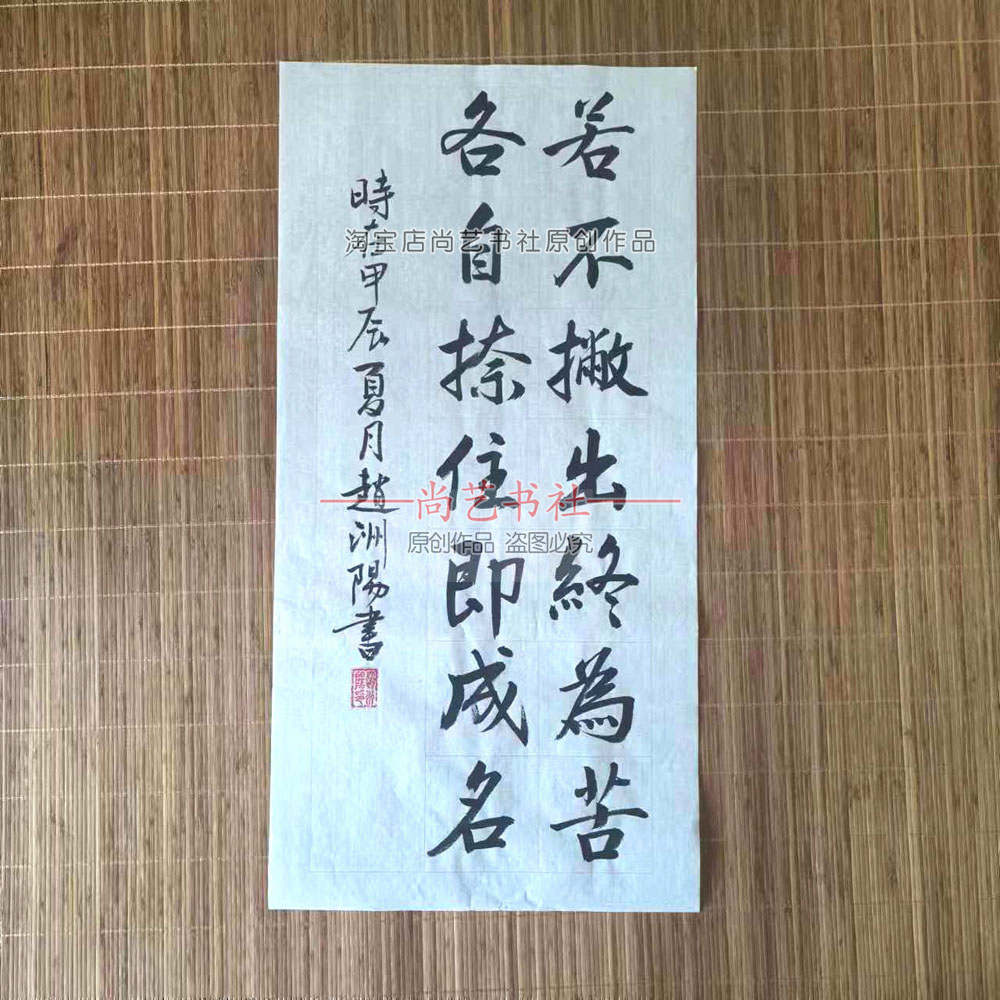 若不撇出終為苦
各自捺住即成名
時在甲辰夏月趙洲陽書
淘宝店尚艺书社原创作品
尚艺书社
原创作品 盗图必究